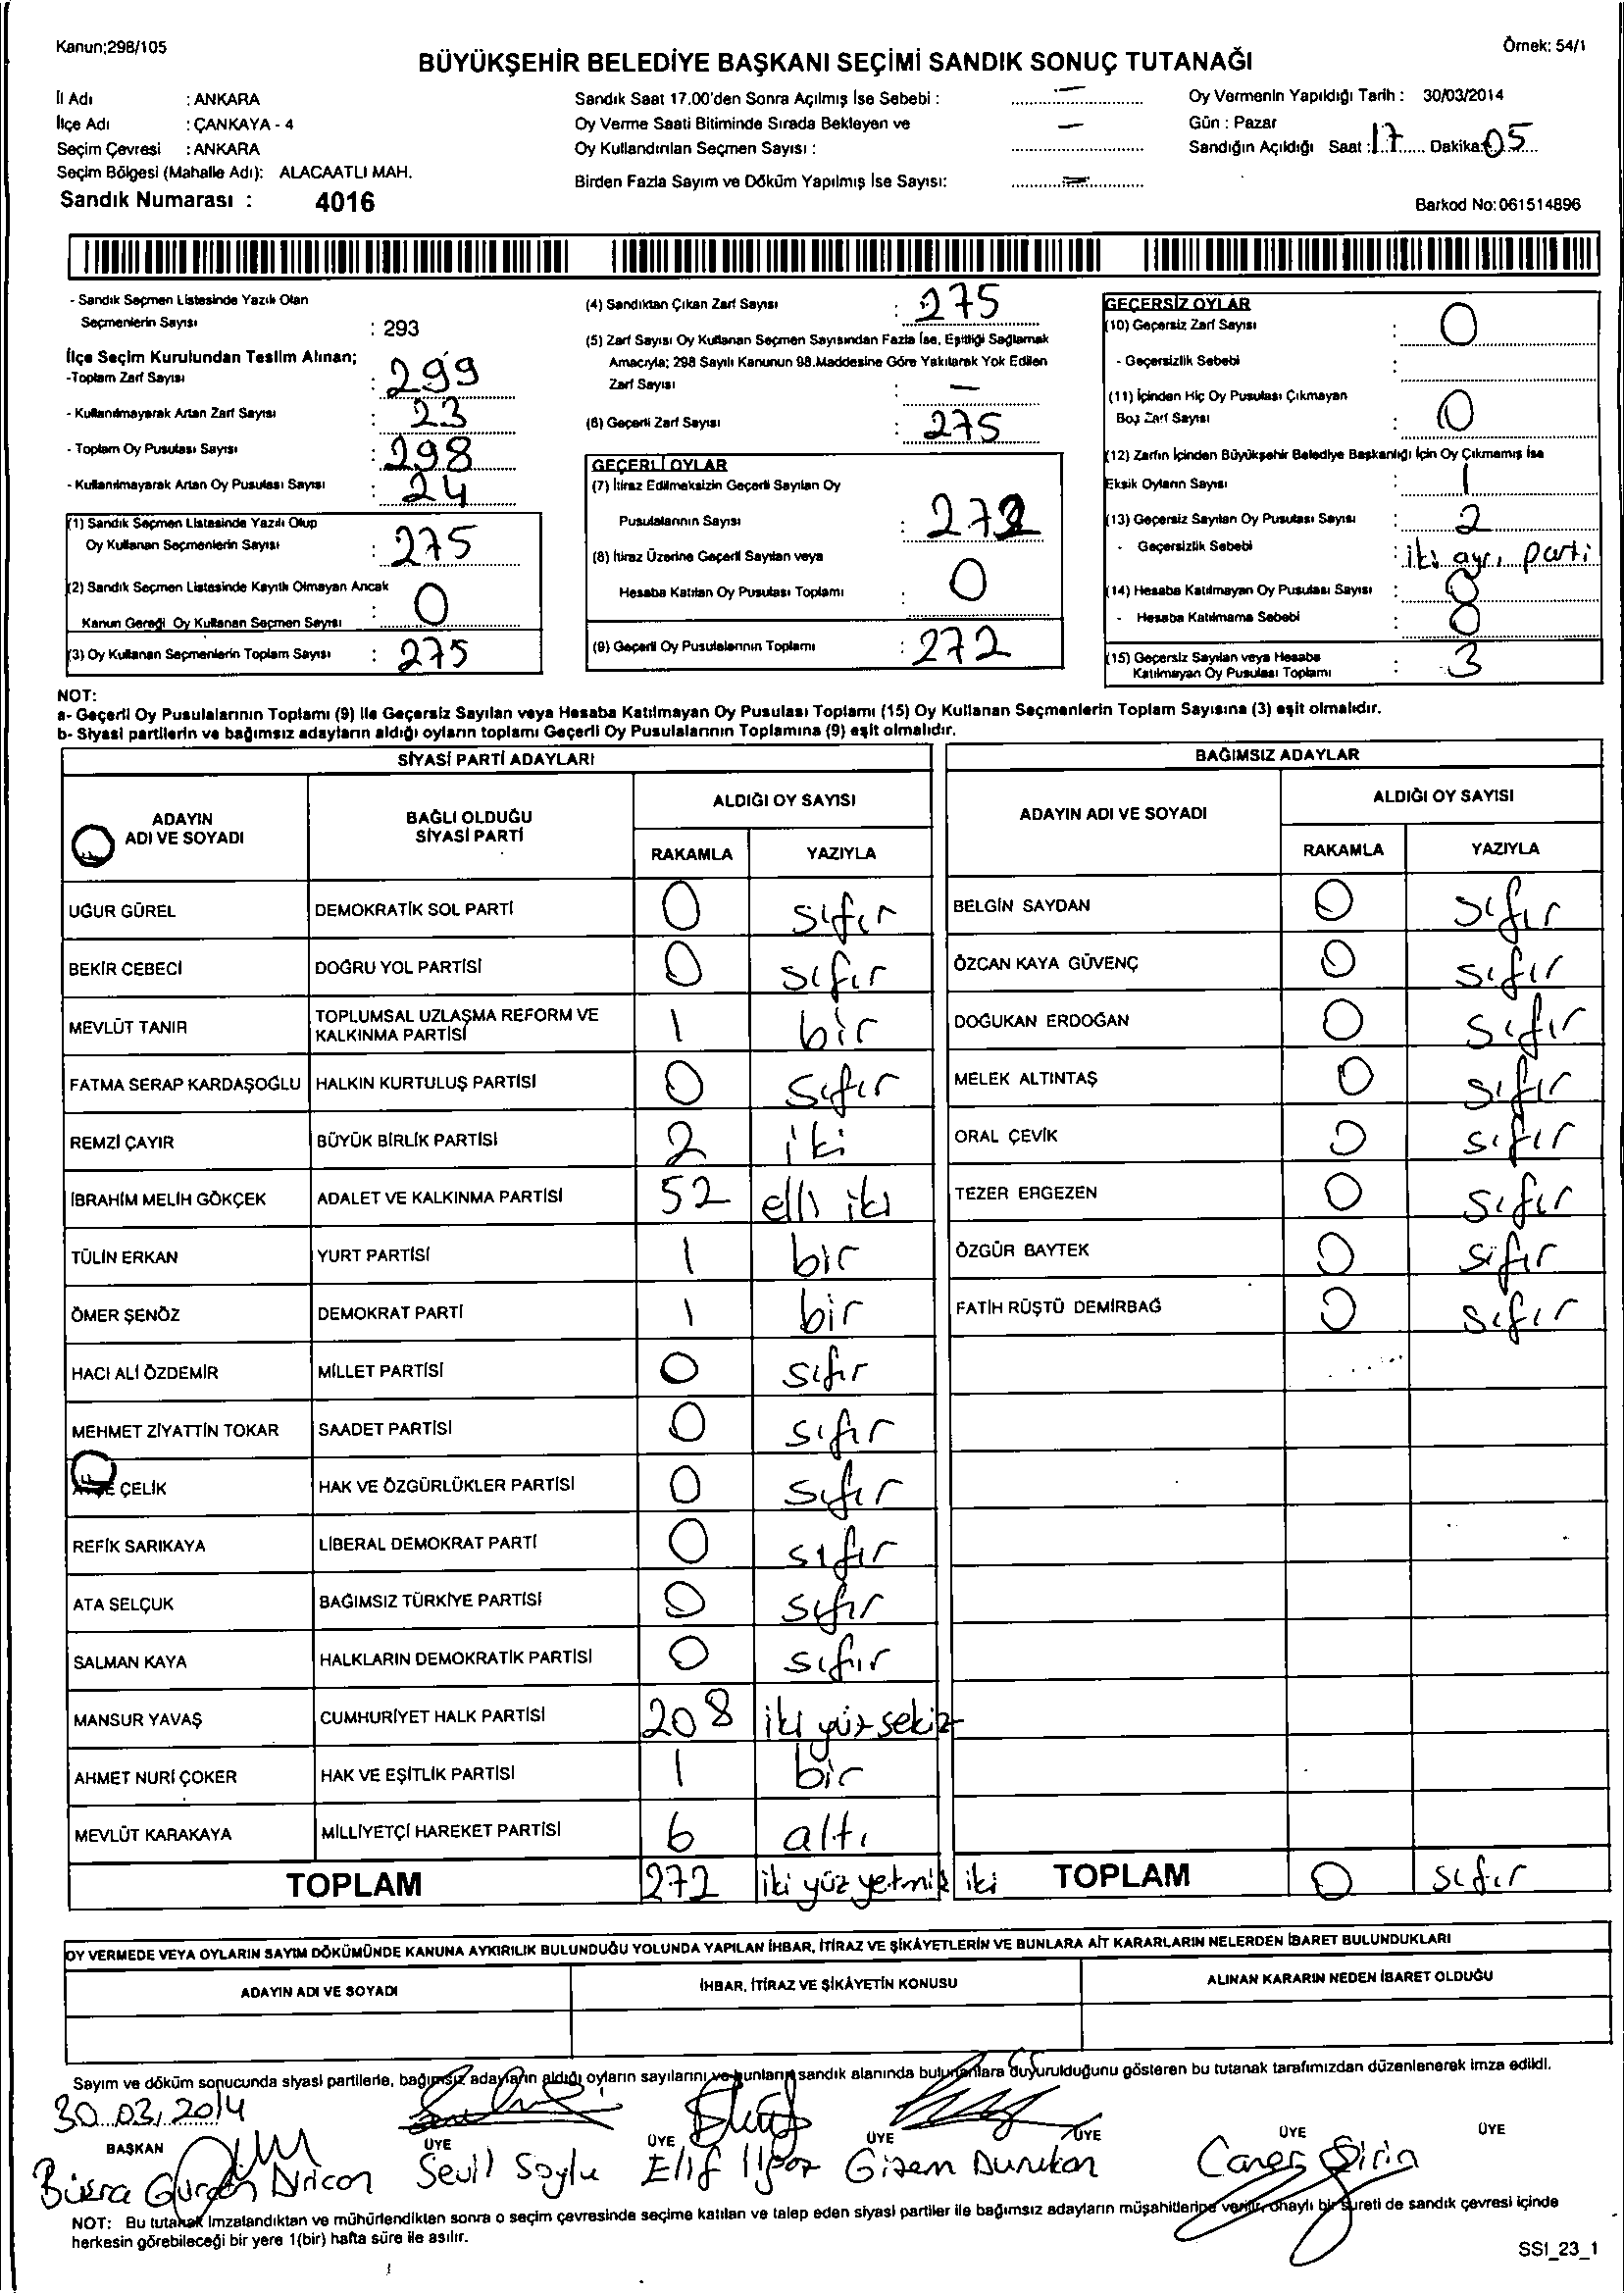 Kanun;298/105
Örnek: 54/1
BÜYÜKŞEHİR BELEDİYE BAŞKANI SEÇİMİ SANDIK SONUÇ TUTANAĞI
İl Adı : ANKARA
İlçe Adı : ÇANKAYA - 4
Seçim Çevresi : ANKARA
Seçim Bölgesi (Mahalle Adı): ALACAATLI MAH.
Sandık Numarası : 4016
Sandık Saat 17.00'den Sonra Açılmış İse Sebebi : —
Oy Verme Saati Bitiminde Sırada Bekleyen ve
Oy Kullandırılan Seçmen Sayısı : —
Birden Fazla Sayım ve Döküm Yapılmış İse Sayısı: —
Oy Vermenin Yapıldığı Tarih : 30/03/2014
Gün : Pazar
Sandığın Açıldığı Saat : 17 Dakika: 05
Barkod No:061514896
- Sandık Seçmen Listesinde Yazılı Olan
Seçmenlerin Sayısı : 293
İlçe Seçim Kurulundan Teslim Alınan;
-Toplam Zarf Sayısı : 299
- Kullanılmayarak Artan Zarf Sayısı : 23
- Toplam Oy Pusulası Sayısı : 298
- Kullanılmayarak Artan Oy Pusulası Sayısı : 24
(1) Sandık Seçmen Listesinde Yazılı Olup
Oy Kullanan Seçmenlerin Sayısı : 275
(2) Sandık Seçmen Listesinde Kayıtlı Olmayan Ancak
Kanun Gereği Oy Kullanan Seçmen Sayısı : 0
(3) Oy Kullanan Seçmenlerin Toplam Sayısı : 275
(4) Sandıktan Çıkan Zarf Sayısı : 275
(5) Zarf Sayısı Oy Kullanan Seçmen Sayısından Fazla İse, Eşitliği Sağlamak
Amacıyla; 298 Sayılı Kanunun 98.Maddesine Göre Yakılarak Yok Edilen
Zarf Sayısı : —
(6) Geçerli Zarf Sayısı : 275
GEÇERLİ OYLAR
(7) İtiraz Edilmeksizin Geçerli Sayılan Oy
Pusulalarının Sayısı : 272
(8) İtiraz Üzerine Geçerli Sayılan veya
Hesaba Katılan Oy Pusulası Toplamı : 0
(9) Geçerli Oy Pusulalarının Toplamı : 272
GEÇERSİZ OYLAR
(10) Geçersiz Zarf Sayısı : 0
- Geçersizlik Sebebi :
(11) İçinden Hiç Oy Pusulası Çıkmayan
Boş Zarf Sayısı : 0
(12) Zarfın İçinden Büyükşehir Belediye Başkanlığı İçin Oy Çıkmamış İse
Eksik Oyların Sayısı : 1
(13) Geçersiz Sayılan Oy Pusulası Sayısı : 2
- Geçersizlik Sebebi : iki ayrı parti
(14) Hesaba Katılmayan Oy Pusulası Sayısı : 0
- Hesaba Katılmama Sebebi : 0
(15) Geçersiz Sayılan veya Hesaba
Katılmayan Oy Pusulası Toplamı : 3
NOT:
a- Geçerli Oy Pusulalarının Toplamı (9) ile Geçersiz Sayılan veya Hesaba Katılmayan Oy Pusulası Toplamı (15) Oy Kullanan Seçmenlerin Toplam Sayısına (3) eşit olmalıdır.
b- Siyasi partilerin ve bağımsız adayların aldığı oyların toplamı Geçerli Oy Pusulalarının Toplamına (9) eşit olmalıdır.
SİYASİ PARTİ ADAYLARI
ADAYIN ADI VE SOYADI BAĞLI OLDUĞU SİYASİ PARTİ ALDIĞI OY SAYISI
RAKAMLA YAZIYLA
UĞUR GÜREL DEMOKRATİK SOL PARTİ 0 sıfır
BEKİR CEBECİ DOĞRU YOL PARTİSİ 0 sıfır
MEVLÜT TANIR TOPLUMSAL UZLAŞMA REFORM VE KALKINMA PARTİSİ 1 bir
FATMA SERAP KARDAŞOĞLU HALKIN KURTULUŞ PARTİSİ 0 sıfır
REMZİ ÇAYIR BÜYÜK BİRLİK PARTİSİ 2 iki
İBRAHİM MELİH GÖKÇEK ADALET VE KALKINMA PARTİSİ 52 elli iki
TÜLİN ERKAN YURT PARTİSİ 1 bir
ÖMER ŞENÖZ DEMOKRAT PARTİ 1 bir
HACI ALİ ÖZDEMİR MİLLET PARTİSİ 0 sıfır
MEHMET ZİYATTİN TOKAR SAADET PARTİSİ 0 sıfır
ÇELİK HAK VE ÖZGÜRLÜKLER PARTİSİ 0 sıfır
REFİK SARIKAYA LİBERAL DEMOKRAT PARTİ 0 sıfır
ATA SELÇUK BAĞIMSIZ TÜRKİYE PARTİSİ 0 sıfır
SALMAN KAYA HALKLARIN DEMOKRATİK PARTİSİ 0 sıfır
MANSUR YAVAŞ CUMHURİYET HALK PARTİSİ 208 iki yüz sekiz
AHMET NURİ ÇOKER HAK VE EŞİTLİK PARTİSİ 1 bir
MEVLÜT KARAKAYA MİLLİYETÇİ HAREKET PARTİSİ 6 altı
TOPLAM 272 iki yüz yetmiş iki
BAĞIMSIZ ADAYLAR
ADAYIN ADI VE SOYADI ALDIĞI OY SAYISI
RAKAMLA YAZIYLA
BELGİN SAYDAN 0 sıfır
ÖZCAN KAYA GÜVENÇ 0 sıfır
DOĞUKAN ERDOĞAN 0 sıfır
MELEK ALTINTAŞ 0 sıfır
ORAL ÇEVİK 0 sıfır
TEZER ERGEZEN 0 sıfır
ÖZGÜR BAYTEK 0 sıfır
FATİH RÜŞTÜ DEMİRBAĞ 0 sıfır
TOPLAM 0 sıfır
OY VERMEDE VEYA OYLARIN SAYIM DÖKÜMÜNDE KANUNA AYKIRILIK BULUNDUĞU YOLUNDA YAPILAN İHBAR, İTİRAZ VE ŞİKÂYETLERİN VE BUNLARA AİT KARARLARIN NELERDEN İBARET BULUNDUKLARI
ADAYIN ADI VE SOYADI İHBAR, İTİRAZ VE ŞİKÂYETİN KONUSU ALINAN KARARIN NEDEN İBARET OLDUĞU
Sayım ve döküm sonucunda siyasi partilerle, bağımsız adayların aldığı oyların sayılarını ve bunların sandık alanında bulunanlara duyurulduğunu gösteren bu tutanak tarafımızdan düzenlenerek imza edildi.
30.03.2014
BAŞKAN ÜYE ÜYE ÜYE ÜYE ÜYE ÜYE
Büşra Sevil Soylu Elif Gizem Caner Şirin
NOT: Bu tutanak İmzalandıktan ve mühürlendikten sonra o seçim çevresinde seçime katılan ve talep eden siyasi partiler ile bağımsız adayların müşahitlerine verilir, onaylı bir sureti de sandık çevresi içinde
herkesin görebileceği bir yere 1(bir) hafta süre ile asılır.
SSI_23_1